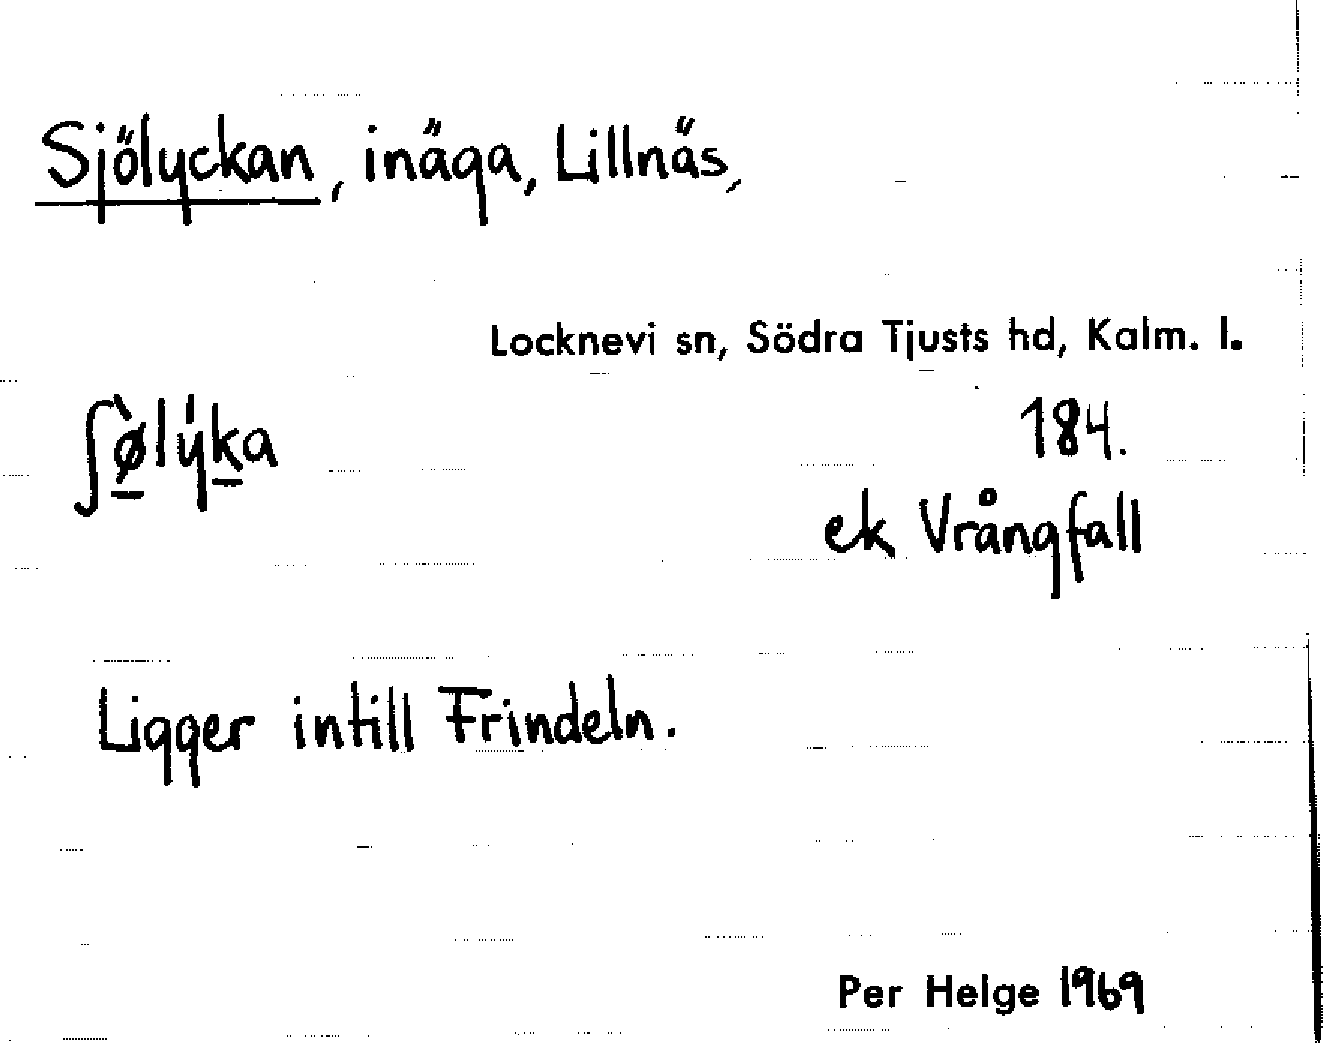 Sjölyckan, inäga, Lillnäs,
Locknevi sn, Södra Tjusts hd, Kalm. l.
ʃø̀lýka
184.
ek Vrångfall
Ligger intill Frindeln.
Per Helge 1969